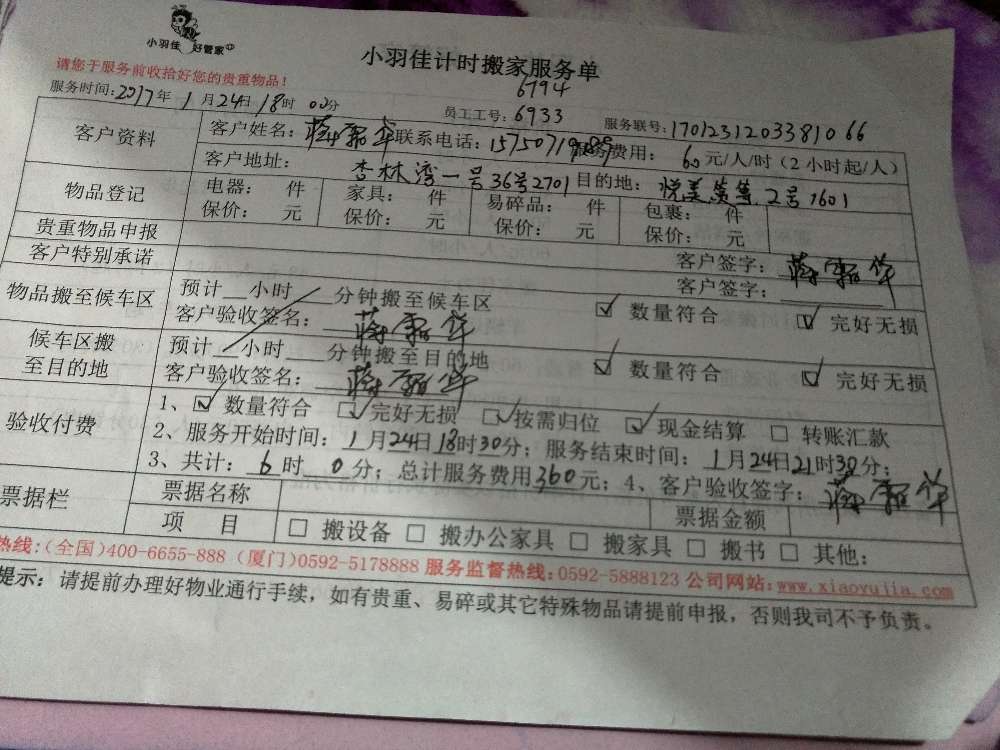 小羽佳 好管家
小羽佳计时搬家服务单
请您于服务前收拾好您的贵重物品！
6794
服务时间：2017年 1月24日18时00分 员工工号：6933 服务联号：17012312033381066
客户资料 客户姓名： 华 联系电话：15750719 服务费用：60元/人/时（2小时起/人）
客户地址：杏林湾一号36号2701 目的地：悦美 2号1601
物品登记 电器： 件 家具： 件 易碎品： 件 包裹： 件
保价： 元 保价： 元 保价： 元 保价： 元
贵重物品申报 客户签字： 华
客户特别承诺 客户签字：
物品搬至候车区 预计__小时___分钟搬至候车区 ☑ 数量符合 ☑ 完好无损
客户验收签名： 华
候车区搬至目的地 预计__小时___分钟搬至目的地 ☑ 数量符合 ☑ 完好无损
客户验收签名： 华
验收付费 1、☑ 数量符合 ☑ 完好无损 ☑ 按需归位 ☑ 现金结算 □ 转账汇款
2、服务开始时间：1月24日18时30分；服务结束时间：1月24日21时30分；
3、共计：6时 0分；总计服务费用360元；4、客户验收签字： 华
票据栏 票据名称 票据金额
项 目 □ 搬设备 □ 搬办公家具 □ 搬家具 □ 搬书 □ 其他：
热线：（全国）400-6655-888（厦门）0592-5178888 服务监督热线：0592-5888123 公司网站：www.xiaoyujia.com
提示：请提前办理好物业通行手续，如有贵重、易碎或其它特殊物品请提前申报，否则我司不予负责。